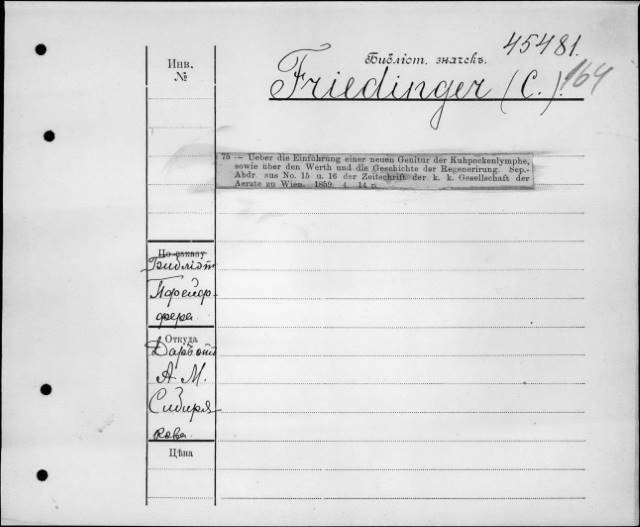 45481.
Библіот. значекъ.
164
Инв.
№
Friedinger (C.).
75 — Ueber die Einführung einer neuen Genitur der Kuhpockenlymphe,
sowie über den Werth und die Geschichte der Regenerirung. Sep.-
Abdr. aus No. 15 u. 16 der Zeitschrift der k. k. Gesellschaft der
Aerzte zu Wien. 1859. 4. 14 p.
По заказу
Библіот
Пфейф-
фера.
Откуда
Даръ отъ
А. М.
Сибиря-
кова.
Цѣна